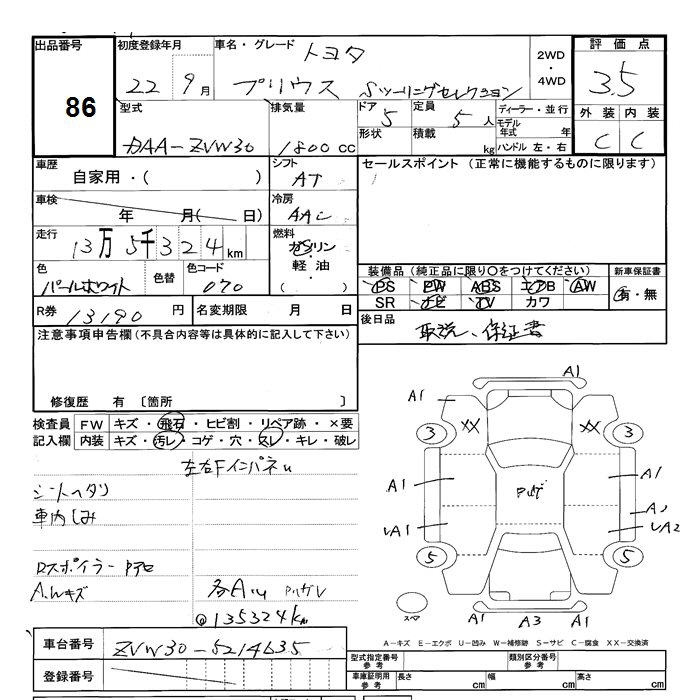 出品番号 初度登録年月 車名・グレード トヨタ 2WD・4WD 評価点
86 22 9月 プリウス Sツーリングセレクション 3.5
型式 排気量 ドア 5 定員 5人 ディーラー・並行 外装 内装
DAA-ZVW30 1800cc 形状 積載 kg モデル年式 年 C C
ハンドル 左・右
車歴 シフト セールスポイント (正常に機能するものに限ります)
自家用・( ) AT
車検 年 月( 日) 冷房 AAC
走行 13万5千324km 燃料 ガソリン・軽油・( )
色 パールホワイト 色替 色コード 070
装備品 (純正品に限り○をつけてください) 新車保証書
PS PW ABS エアB AW 有・無
SR ナビ TV カワ
R券 13190円 名変期限 月 日 後日品 取説、保証書
注意事項申告欄 (不具合内容等は具体的に記入して下さい)
修復歴 有 〔箇所 〕
検査員記入欄 FW キズ・飛石・ヒビ割・リペア跡・×要
内装 キズ・汚レ・コゲ・穴・スレ・キレ・破レ
左右Fインパネu
シートヘタリ
車内しみ
Rスポイラー
A.Wキズ
各AU
@135324km
A1
A1
XX XX
3 3
A1 A1
UA1 UA2
5 5
スペア
A1 A3 A1
A-キズ E-エクボ U-凹み W-補修跡 S-サビ C-腐食 XX-交換済
車台番号 ZVW30-5214635
登録番号
型式指定番号 参考 類別区分番号 参考
車庫証明用 参考 長さ cm 幅 cm 高さ cm